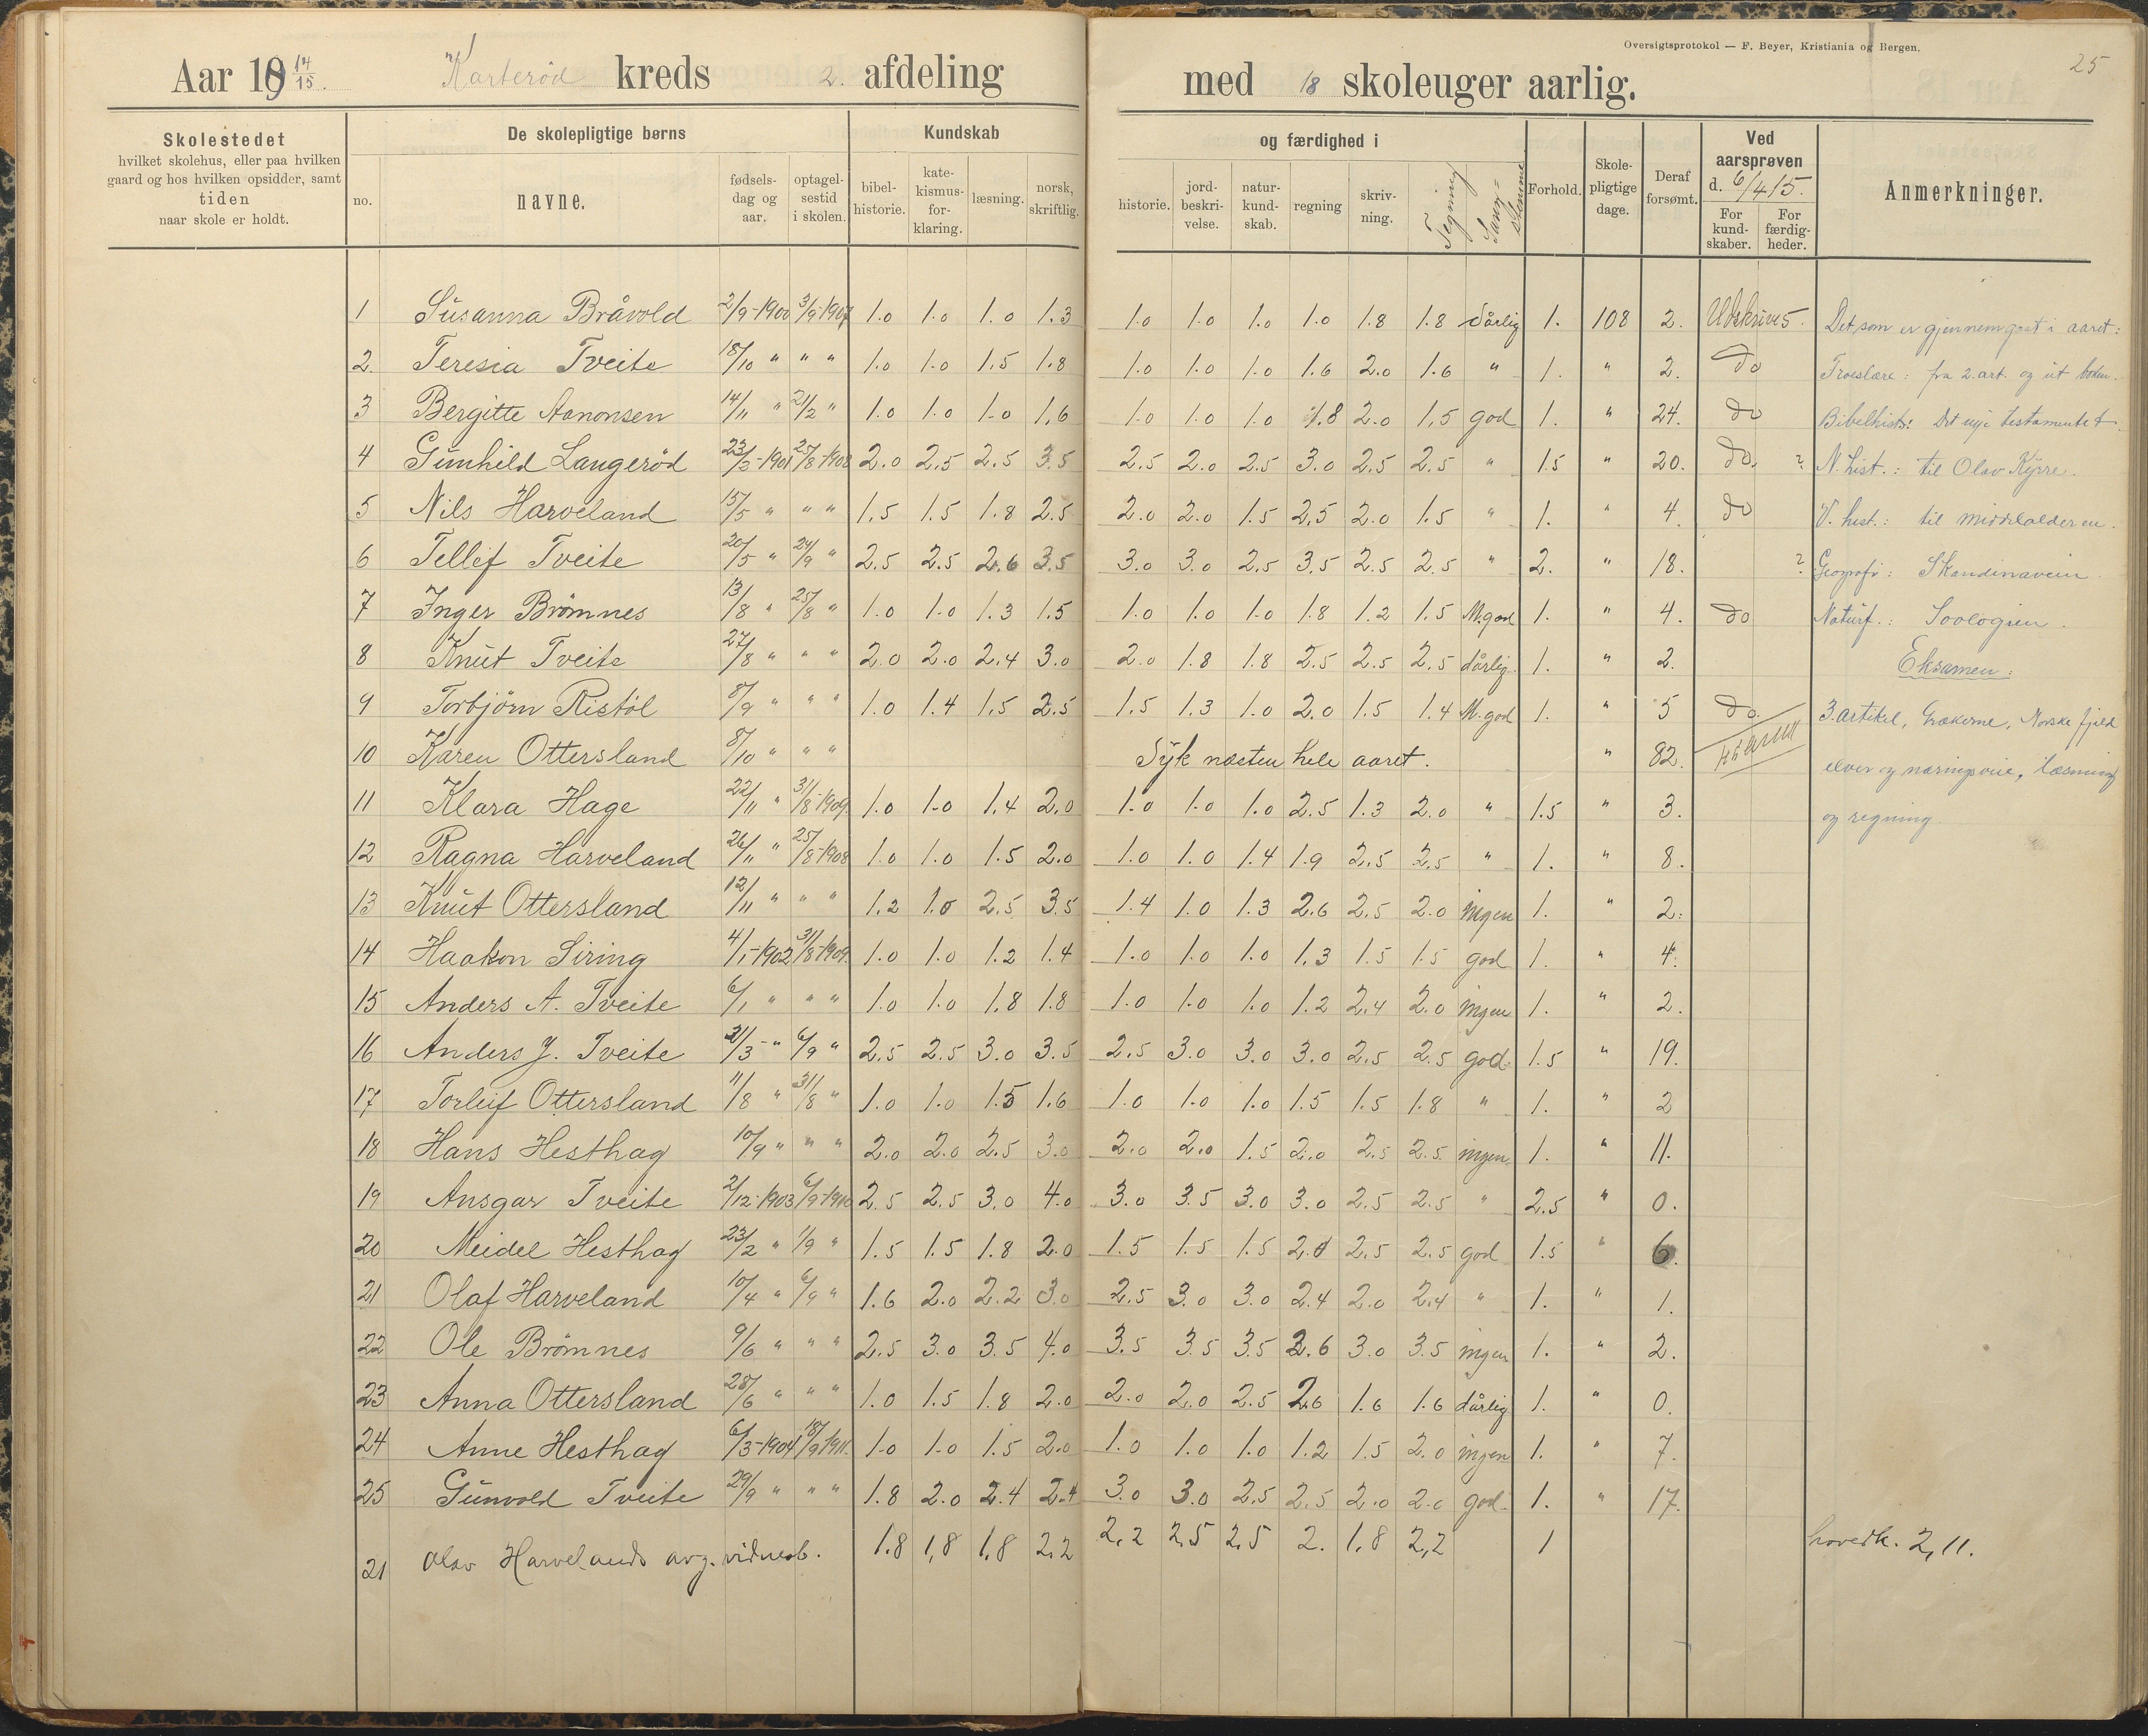 Oversigtsprotokol — F. Beyer, Kristiania og Bergen.
25
Aar 19 14/15. Karterød kreds 2. afdeling med 18 skoleuger aarlig.
Skolestedet
hvilket skolehus, eller paa hvilken
gaard og hos hvilken opsidder, samt
tiden
naar skole er holdt.
De skolepligtige børns
no.
navne.
fødsels-
dag og
aar.
optagel-
sestid
i skolen.
Kundskab
bibel-
historie.
kate-
kismus-
for-
klaring.
læsning.
norsk,
skriftlig.
og færdighed i
historie.
jord-
beskri-
velse.
natur-
kund-
skab.
regning
skriv-
ning.
Tegning
Sang-
stemme
Forhold.
Skole-
pligtige
dage.
Deraf
forsømt.
Ved
aarsprøven
d. 6/4 15.
For
kund-
skaber.
For
færdig-
heder.
Anmerkninger.
1 Susanna Bråvold 2/9-1900 3/9-1907 1.0 1.0 1.0 1.3 1.0 1.0 1.0 1.0 1.8 1.8 dårlig 1. 108 2. Udskrives. Det, som er gjennemgaat i aaret:
2. Teresia Tveite 18/10 " " " 1.0 1.0 1.5 1.8 1.0 1.0 1.0 1.6 2.0 1.6 " 1. " 2. do Troeslære: fra 2. art. og ut boken.
3 Bergitte Aanonsen 14/11 " 21/2 " 1.0 1.0 1.0 1.6 1.0 1.0 1.0 1.8 2.0 1.5 god 1. " 24. do Bibelhist: Det nye testamentet.
4 Gunhild Langerød 23/3-1901 25/8-1908 2.0 2.5 2.5 3.5 2.5 2.0 2.5 3.0 2.5 2.5 " 1.5 " 20. do. ? N. hist.: til Olav Kyrre.
5 Nils Harveland 15/5 " " " 1.5 1.5 1.8 2.5 2.0 2.0 1.5 2.5 2.0 1.5 " 1. " 4. do V. hist.: til middelalderen.
6 Tellef Tveite 20/5 " 24/9 " 2.5 2.5 2.6 3.5 3.0 3.0 2.5 3.5 2.5 2.5 " 2. " 18. ? Geografi: Skandinavein.
7 Inger Brømnes 13/8 " 25/8 " 1.0 1.0 1.3 1.5 1.0 1.0 1.0 1.8 1.2 1.5 M.god 1. " 4. do Naturf.: Soologien.
8 Knut Tveite 27/8 " " " 2.0 2.0 2.4 3.0 2.0 1.8 1.8 2.5 2.5 2.5 dårlig. 1. " 2. Eksamen:
9 Torbjørn Ristøl 8/9 " " " 1.0 1.4 1.5 2.5 1.5 1.3 1.0 2.0 1.5 1.4 M.god 1. " 5 do. 3. artikel, Grækerne, Norske fjeld
10 Karen Ottersland 8/10 " " " Syk næsten hele aaret. " 82. elver og næringsveie, Læsning
11 Klara Hage 22/11 " 31/8-1909. 1.0 1.0 1.4 2.0 1.0 1.0 1.0 2.5 1.3 2.0 " 1.5 " 3. og regning
12 Ragna Harveland 26/11 " 25/8-1908 1.0 1.0 1.5 2.0 1.0 1.0 1.4 1.9 2.5 2.5 " 1. " 8.
13 Knut Ottersland 12/11 " " " 1.2 1.0 2.5 3.5 1.4 1.0 1.3 2.6 2.5 2.0 ingen 1. " 2.
14 Haakon Siring 4/1-1902 31/8-1909. 1.0 1.0 1.2 1.4 1.0 1.0 1.0 1.3 1.5 1.5 god 1. " 4.
15 Anders A. Tveite 6/1 " " " 1.0 1.0 1.8 1.8 1.0 1.0 1.0 1.2 2.4 2.0 ingen 1. " 2.
16 Anders J. Tveite 31/3 " 6/9 " 2.5 2.5 3.0 3.5 2.5 3.0 3.0 3.0 2.5 2.5 god. 1.5 " 19.
17 Torleif Ottersland 11/8 " 31/8 " 1.0 1.0 1.5 1.6 1.0 1.0 1.0 1.5 1.5 1.8 " 1. " 2
18 Hans Hesthag 10/9 " " " 2.0 2.0 2.5 3.0 2.0 2.0 1.5 2.0 2.5 2.5 ingen. 1. " 11.
19 Ansgar Tveite 2/12-1903 6/9-1910 2.5 2.5 3.0 4.0 3.0 3.5 3.0 3.0 2.5 2.5 " 2.5 " 0.
20 Meidel Hesthag 23/2 " 1/9 " 1.5 1.5 1.8 2.0 1.5 1.5 1.5 2.0 2.5 2.5 god 1.5 " 6.
21 Olaf Harveland 10/4 " 6/9 " 1.6 2.0 2.2 3.0 2.5 3.0 3.0 2.4 2.0 2.4 " 1. " 1.
22 Ole Brømnes 9/6 " " " 2.5 3.0 3.5 4.0 3.5 3.5 3.5 3.6 3.0 3.5 ingen 1. " 2.
23 Anna Ottersland 28/6 " " " 1.0 1.5 1.8 2.0 2.0 2.0 2.5 2.6 1.6 1.6 dårlig 1. " 0.
24 Anne Hesthag 6/3-1904 18/9 1911. 1.0 1.0 1.5 2.0 1.0 1.0 1.0 1.2 1.5 2.0 ingen 1. " 7.
25 Gunvald Tveite 29/9 " " " 1.8 2.0 2.4 2.4 3.0 3.0 2.5 2.5 2.0 2.0 god. 1. " 17.
21 Olav Harvelands avg. vidnesb. 1.8 1,8 1,8 2,2 2,2 2,5 2,5 2. 1,8 2,2 1 hovedk. 2,11.